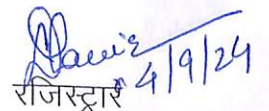 4/9/24
रजिस्ट्रार